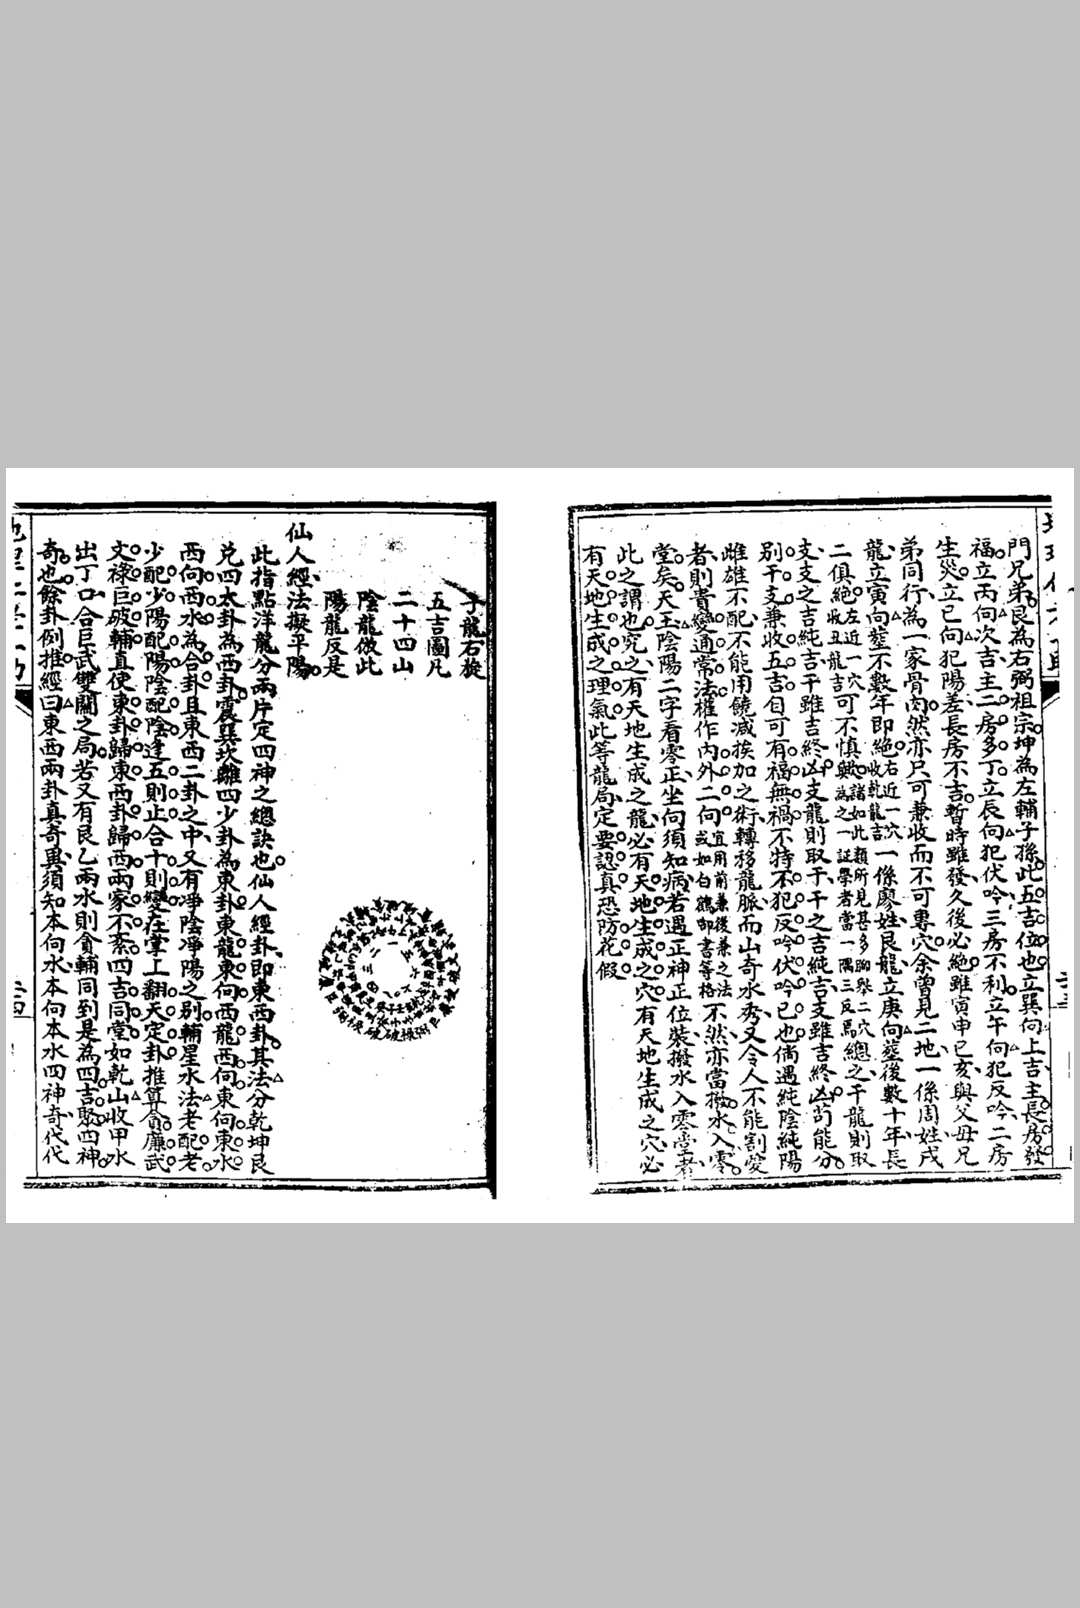 門兄弟艮為右弼祖宗坤為左輔子孫此五吉位也立巽向上吉主長房發
福立丙向次吉主二房多丁立辰向犯伏吟三房不利立午向犯反吟二房
生災立巳向犯陽差長房不吉暫時雖發久後必絶雖寅申巳亥與父母兄
弟同行為一家骨肉然亦只可兼收而不可專穴余曾見二地一係周姓戌
龍立寅向塟不數年即絶右近一穴收乾龍吉一係廖姓艮龍立庚向塟後數十年長
二俱絶左近一穴收丑龍吉可不慎歟諸如此類所見甚多聊舉二穴為之一証學者當一隅三反焉總之干龍則取
支支之吉純吉干雖吉終凶支龍則取干干之吉純吉支雖吉終凶茍能分
別干支兼收五吉自可有福無禍不特不犯反吟伏吟已也倘遇純陰純陽
雌雄不配不能用饒減挨加之術轉移龍脈而山奇水秀又令人不能割愛
者則貴變通常法權作內外二向宜用前兼後兼之法或如白鶴御書等格不然亦當撥水入零
堂矣天玉陰陽二字看零正坐向須知病若遇正神正位裝撥水入零堂者
此之謂也究之有天地生成之龍必有天地生成之穴有天地生成之穴必
有天地生成之理氣此等龍局定要認真恐防花假
子龍右旋
五吉圖凡
二十四山
陰龍倣此
陽龍反是
仙人經法擬平陽
此指點洋龍分兩片定四神之總訣也仙人經卦即東西卦其法分乾坤艮
兌四太卦為西卦震巽坎離四少卦為東卦東龍東向西龍西向東向東水
西向西水為合卦且東西二卦之中又有凈陰凈陽之別輔星水法老配老
少配少陽配陽陰配陰逢五則止合十則變在掌上翻天定卦推算貪廉武
文祿巨破輔直使東卦歸東西卦歸西兩家不紊四吉同堂如乾山收甲水
出丁口合巨武雙關之局若又有艮乙兩水則貪輔同到是為四吉聚四神
奇也餘卦例推經曰東西兩卦真奇異須知本向水本向本水四神奇代代